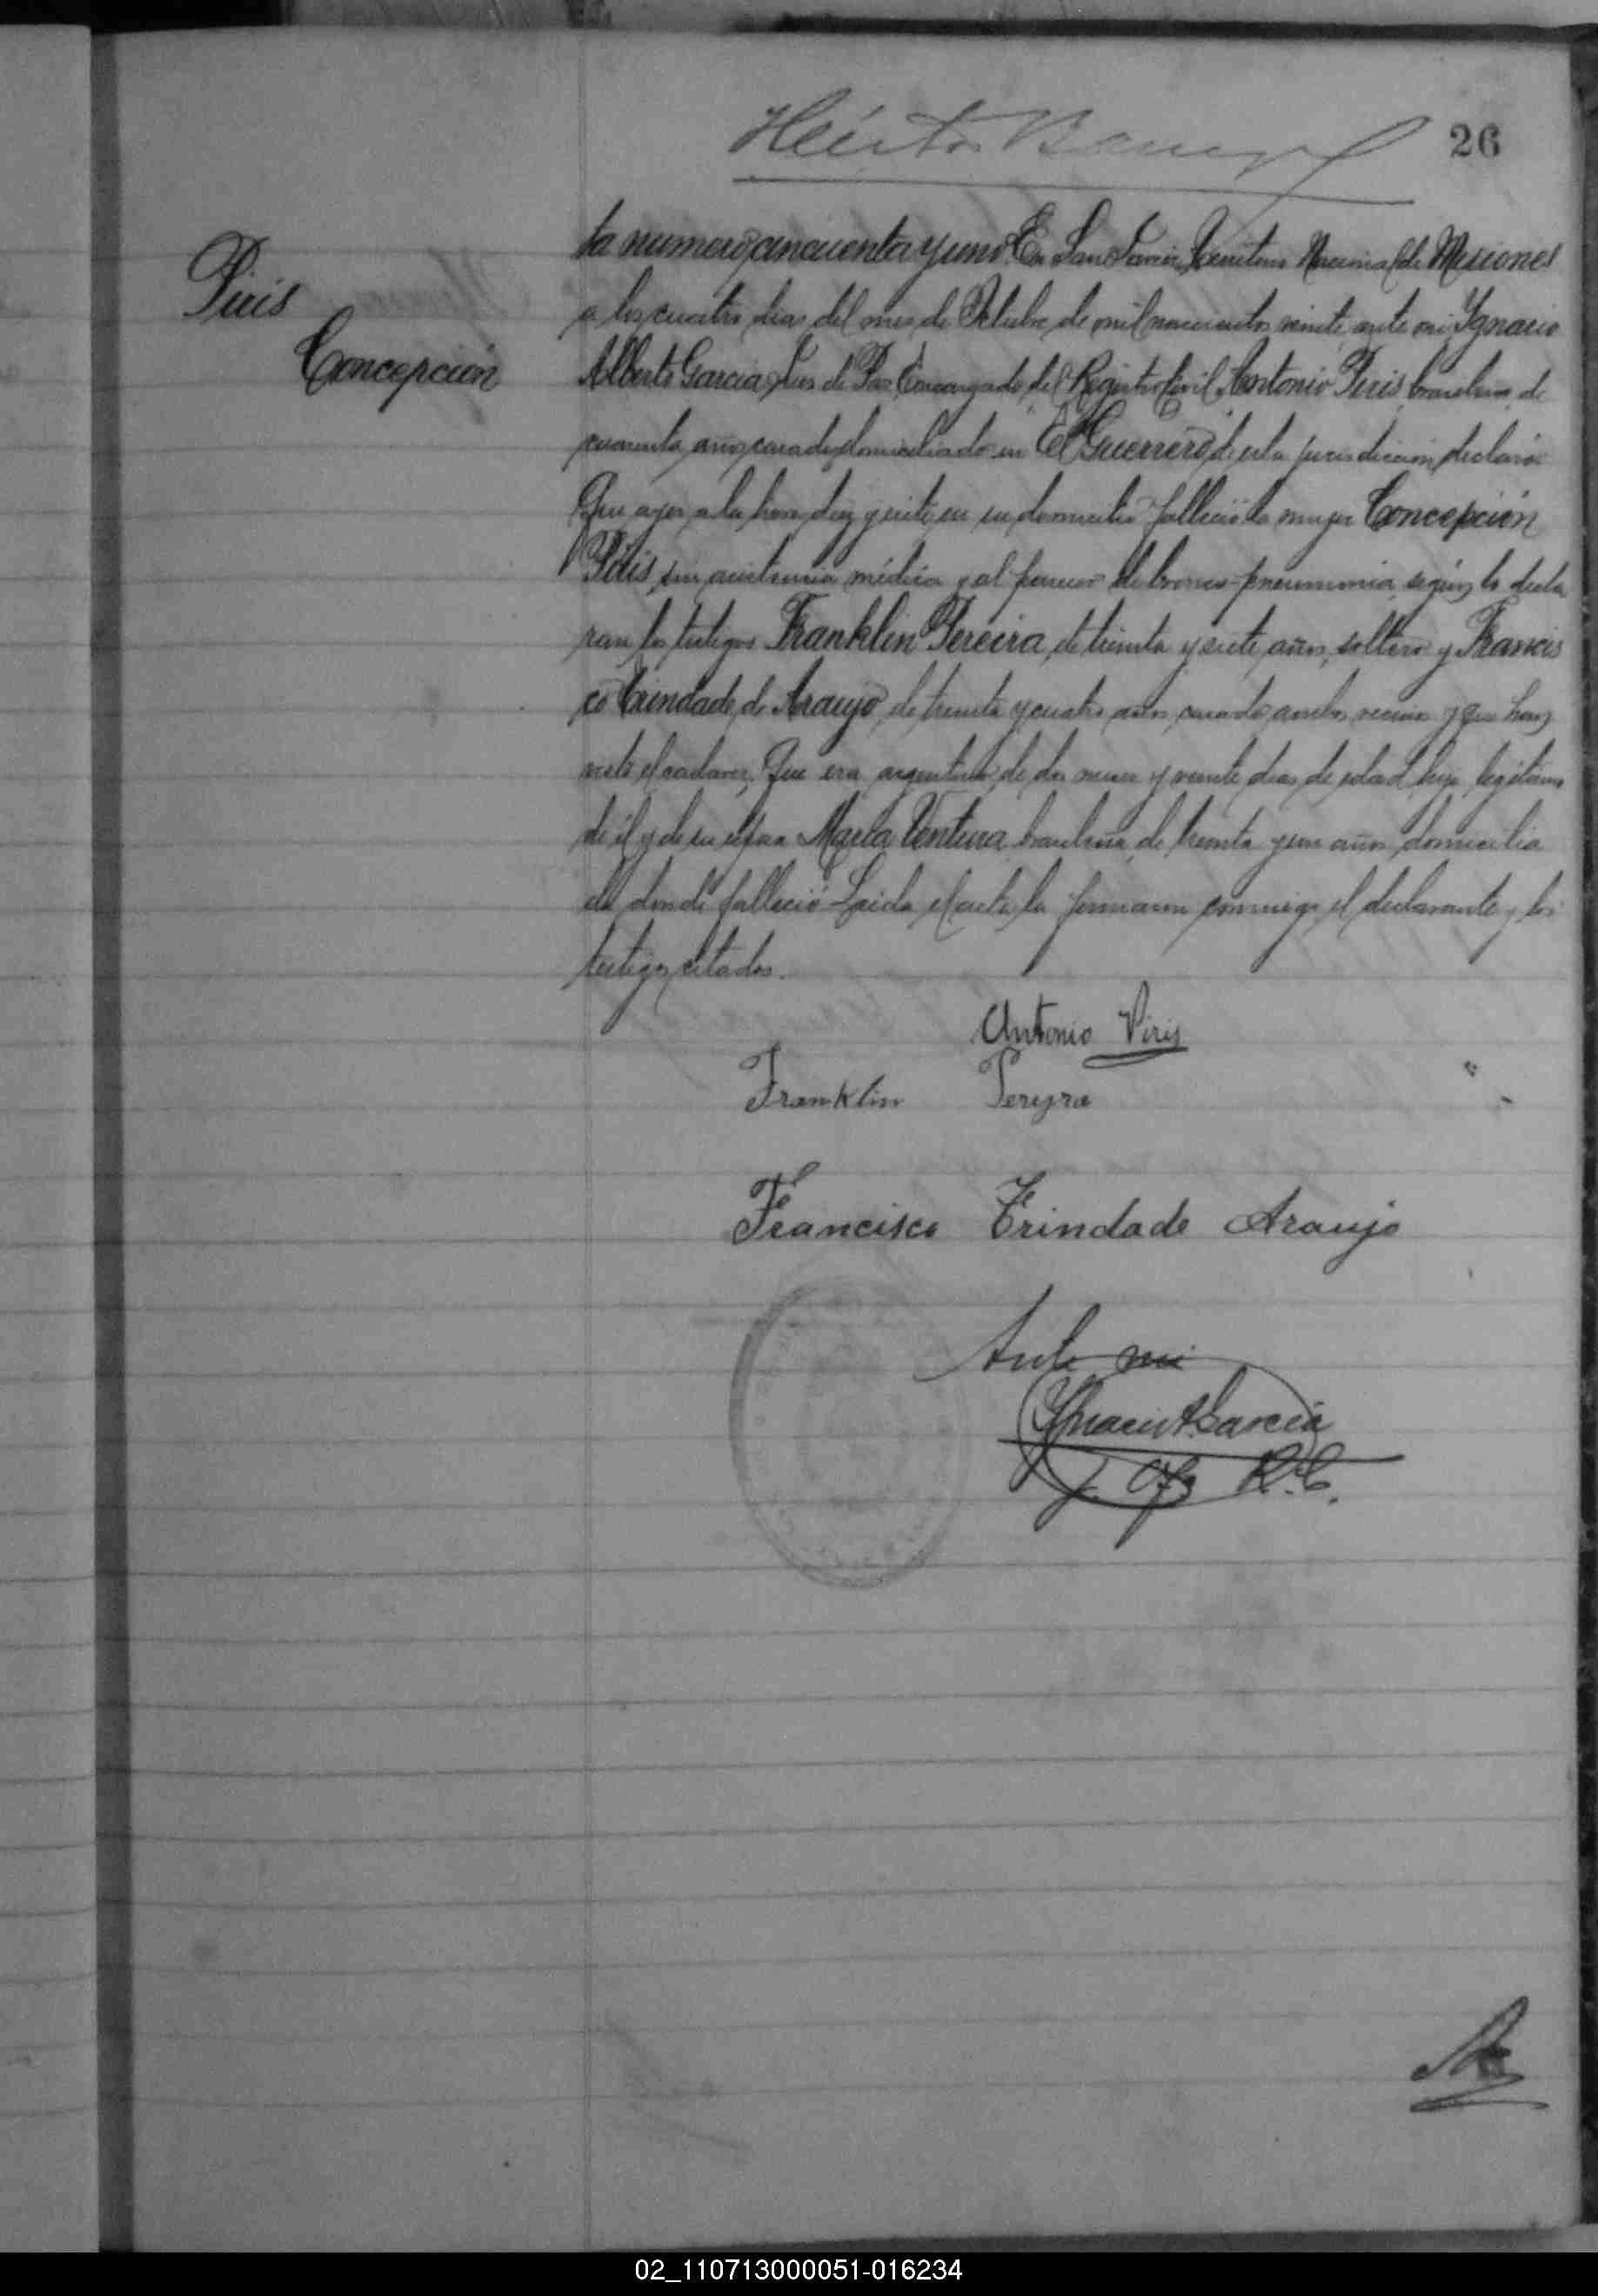 Héctor
26
Piris
Concepción
ta numero cincuenta y uno. En San Javier, Territorio Nacional de Misiones
a los cuatro dias del mes de Octubre de mil novecientos veinte, ante mi Ygnacio
Alberto Garcia, Juez de Paz Encargado del Registro Civil, Antonio Piris, brasilero, de
cuarenta años, casado, domiciliado en "El Guerrero" de esta jurisdicción, declaró:
Que ayer a la hora diez y siete, en su domicilio falleció la mujer Concepción
Piris, sin asistencia médica y al parecer de bronco-pneumonia, según lo decla
ran los testigos Franklin Pereira, de treinta y siete años, soltero y Francis
co Trindade de Araujo, de treinta y cuatro años, casado, ambos vecinos y que han
visto el cadaver, Que era argentina, de dos meses y veinte dias de edad, hija legitima
de él y de su esposa Maria Ventura, brasilera, de treinta y un años, domicilia
da donde falleció. Leida el acta la firmaron conmigo el declarante y los
testigos citados.
Antonio Piris
Franklin Pereyra
Francisco Trindade Araujo
Ante mi
Ygnacio A. Garcia
R. C.
02_110713000051-016234